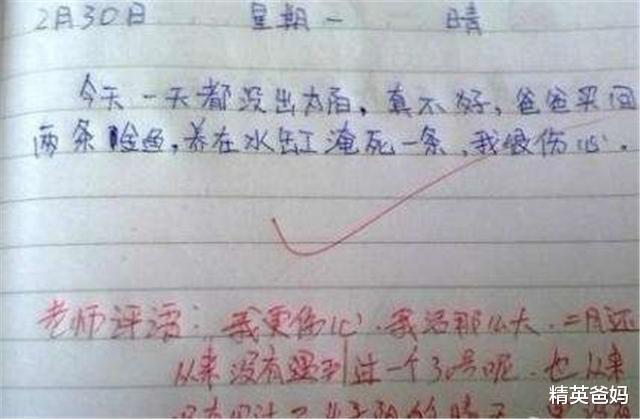 2月30日 星期一 晴
今天一天都没出太阳,真不好,爸爸买回
两条金鱼,养在水缸淹死一条,我很伤心。
老师评语:我更伤心.我活那么大.二月还
从来没有遇到过一个30号呢.也从来
精英爸妈